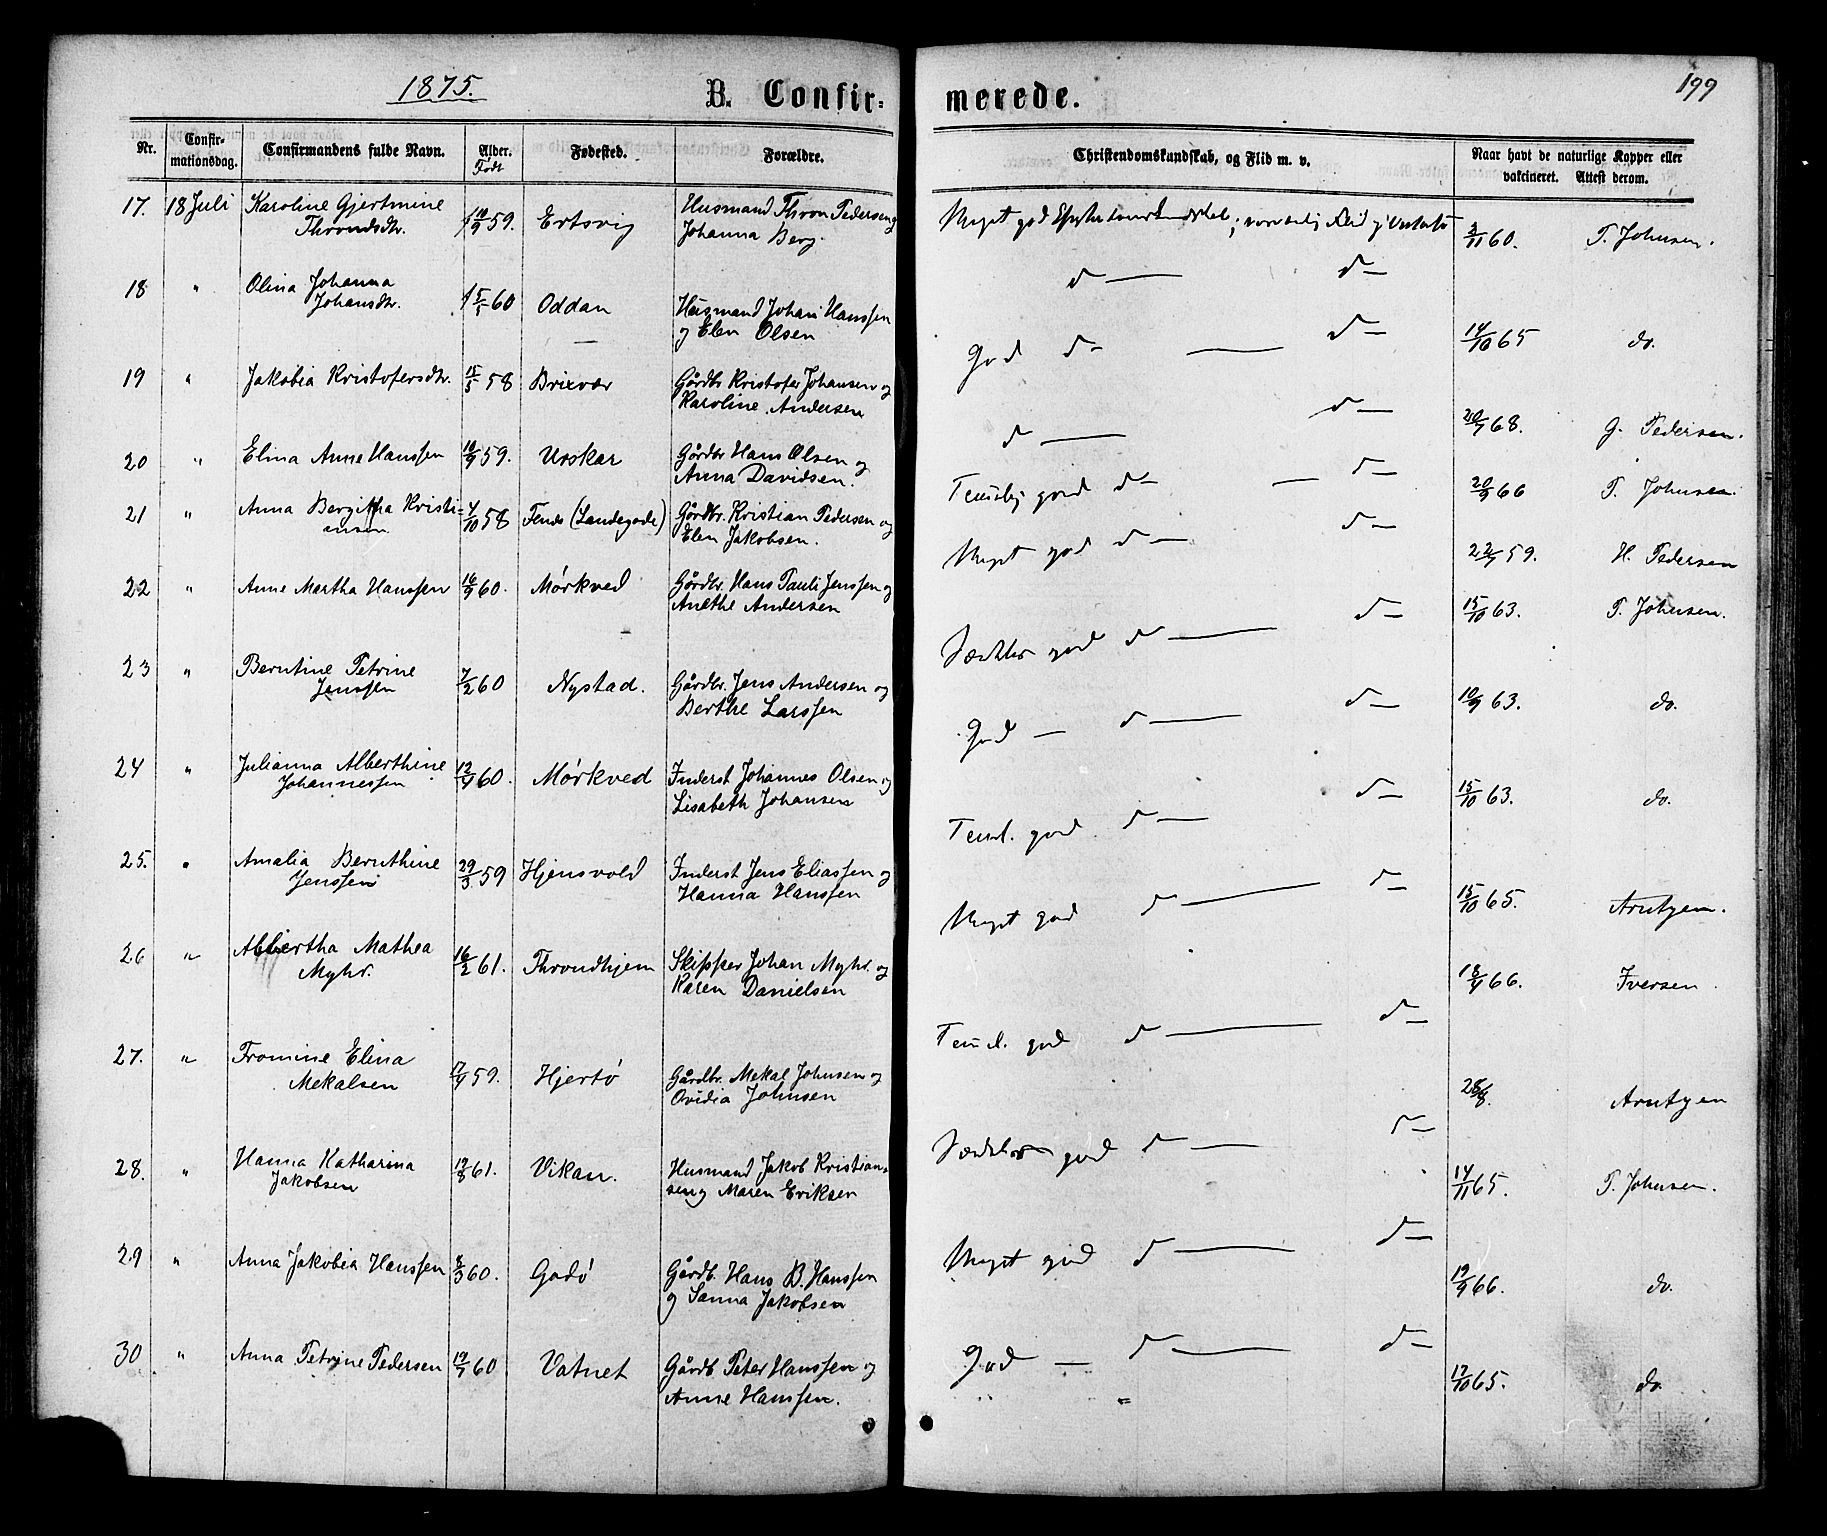 1875. B. Confir- merede. 199
Nr. Confir- mationsdag. Confirmandens fulde Navn. Alder. Født Fødested. Forældre. Christendomskundskab, og Flid m. v. Naar havt de naturlige Kopper eller vakcineret. Attest derom.
17. 18 Juli Karoline Gjertmine 59. Ertsvig Husmand Thron Pedersen og Meget god
Throndsdtr. Johanna Berg. 3/11 60. T. Johnsen.
18 " Olina Johanna d — d —
Johansdtr. 60 Oddan Husmand Johan Hanssen
og Elen Olsen God d — — d — 14/10 65 do.
19 " Jakobia Kristofersdtr. 15/5 58 Brixvær Gårdbr Kristofer Johansen og
Karoline Andersen d — d — 68. G. Pedersen.
20 " Elina Anne Hanssen 59. Urskar Gårdbr Hans Olsen og
Anna Davidsen. Temlig god d — — d — 66 T. Johnsen.
21 " Anna Bergitha Kristi- 4/10 58 (Landegode) Gårdbr. Kristian Pedersen og
ansen Elen Jakobsen. Meget god d — d — 59. H. Pedersen
22 " Anne Martha Hanssen 60. Mørkved Gårdbr. Hans Pauli Jenssen og
Anethe Andersen god d — d — 15/10 63. T. Johnsen.
23 " Berntine Petrine
Jenssen 7/2 60 Nystad. Gårdbr. Jens Andersen og
Berthe Larssen God — d — d — 10/9 63. do.
24 " Julianna Alberthine
Johannessen 60. Mørkved Inderst Johannes Olsen og
Lisabeth Johansen Teml. god d — d — 15/10 63. do.
25. " Amalia Bernthine
Jenssen 29/3 59 Hjensvold Inderst Jens Eliassen og
Hanna Hanssen Meget god d — d — 15/10 65. Arntzen.
26 " Albertha Mathea
Myhr. 16/2 61. Throndhjem Skipper Johan Myhr. og
Karen Danielsen Teml. god d — d — 66. Iversen.
27. " Fromine Elina
Mekalsen 59. Hjertø Gårdbr. Mekal Johnsen og
Ovidia Johnsen god d — d — Arntzen
28. " Hanna Katharina
Jakobsen 61. Vikan. Husmand Jakob Kristian-
sen og Maren Eriksen 14/11 65. T. Johnsen.
29 " Anna Jakobia Hanssen 8/3 60. Godø Gårdb. Hans B. Hanssen
og Sanna Jakobsen Meget god d — d — 19/9 66. do.
30 " Anna Petrine Pedersen 60 Vatnet Gårdb Peter Hanssen og
Anne Hanssen. God — d — d — 17/10 65. do.